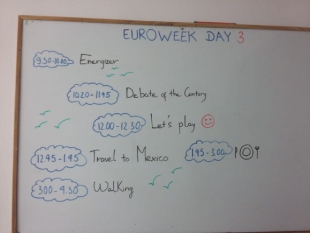 EUROWEEK DAY 3
9.30-10.00 Energizer
10.20-11.45 Debate of the Century
12.00-12.30 Let's play
12.45-1.45 Travel to Mexico 1.45-3.00
3.00-4.30 Walking